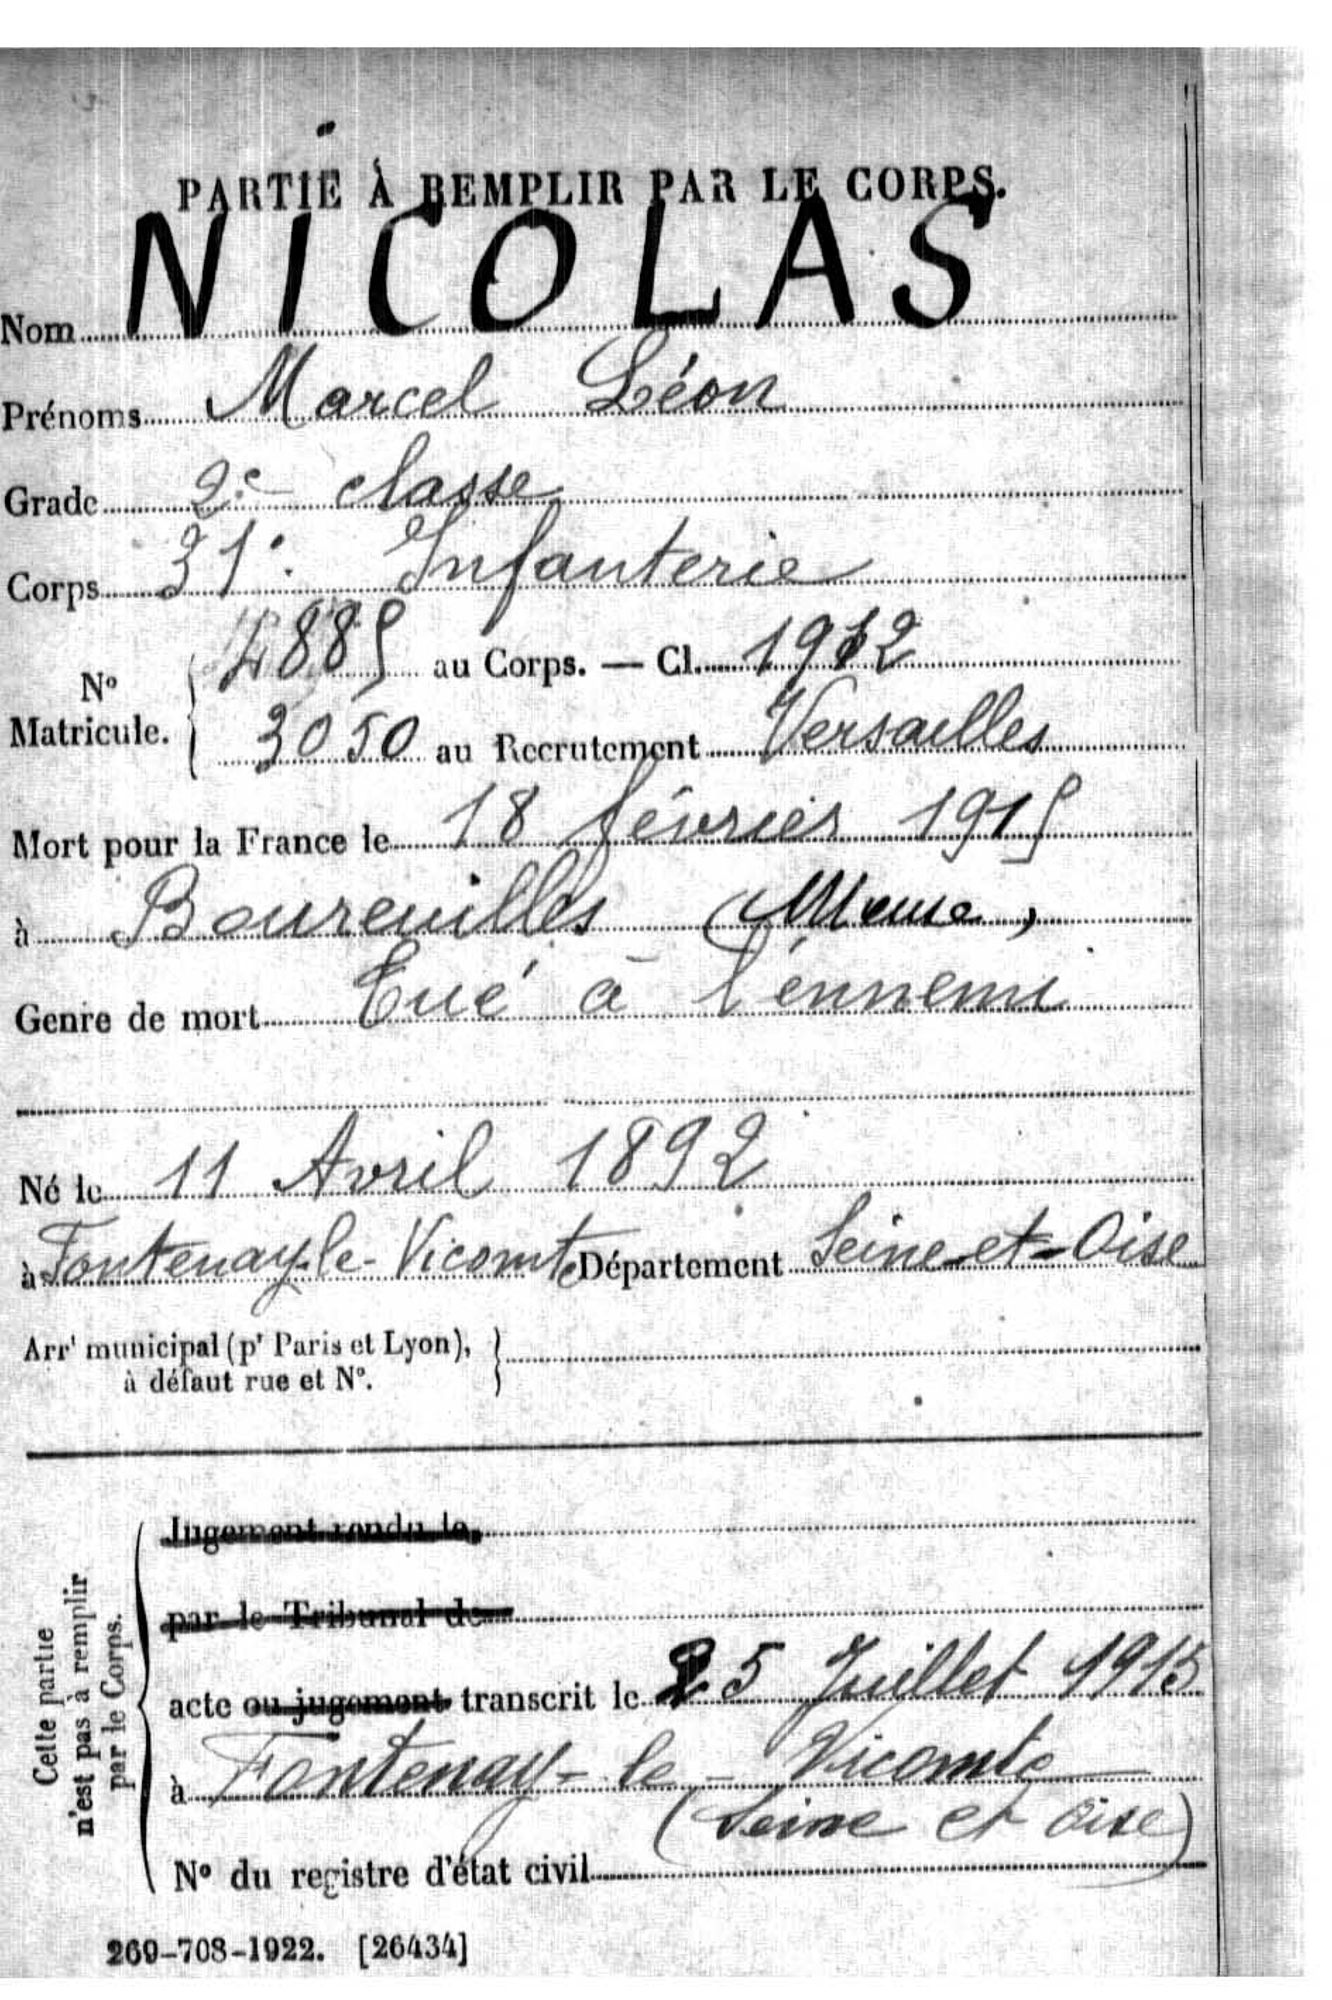 PARTIE À REMPLIR PAR LE CORPS.
Nom NICOLAS
Prénoms Marcel Léon
Grade 2e classe
Corps 31e Infanterie
N° Matricule. 4885 au Corps. — Cl. 1912
3050 au Recrutement Versailles
Mort pour la France le 18 février 1915
à Boureuilles (Meuse)
Genre de mort Tué à l'énnemi
Né le 11 Avril 1892
à Fontenay-le-Vicomte Département Seine-et-Oise
Arrt municipal (pr Paris et Lyon),
à défaut rue et N°.
Cette partie
n'est pas à remplir
par le Corps.
Jugement rendu le
par le Tribunal de
acte ou jugement transcrit le 25 Juillet 1915
à Fontenay-le-Vicomte
(Seine et Oise)
N° du registre d'état civil
269-708-1922. [26434]